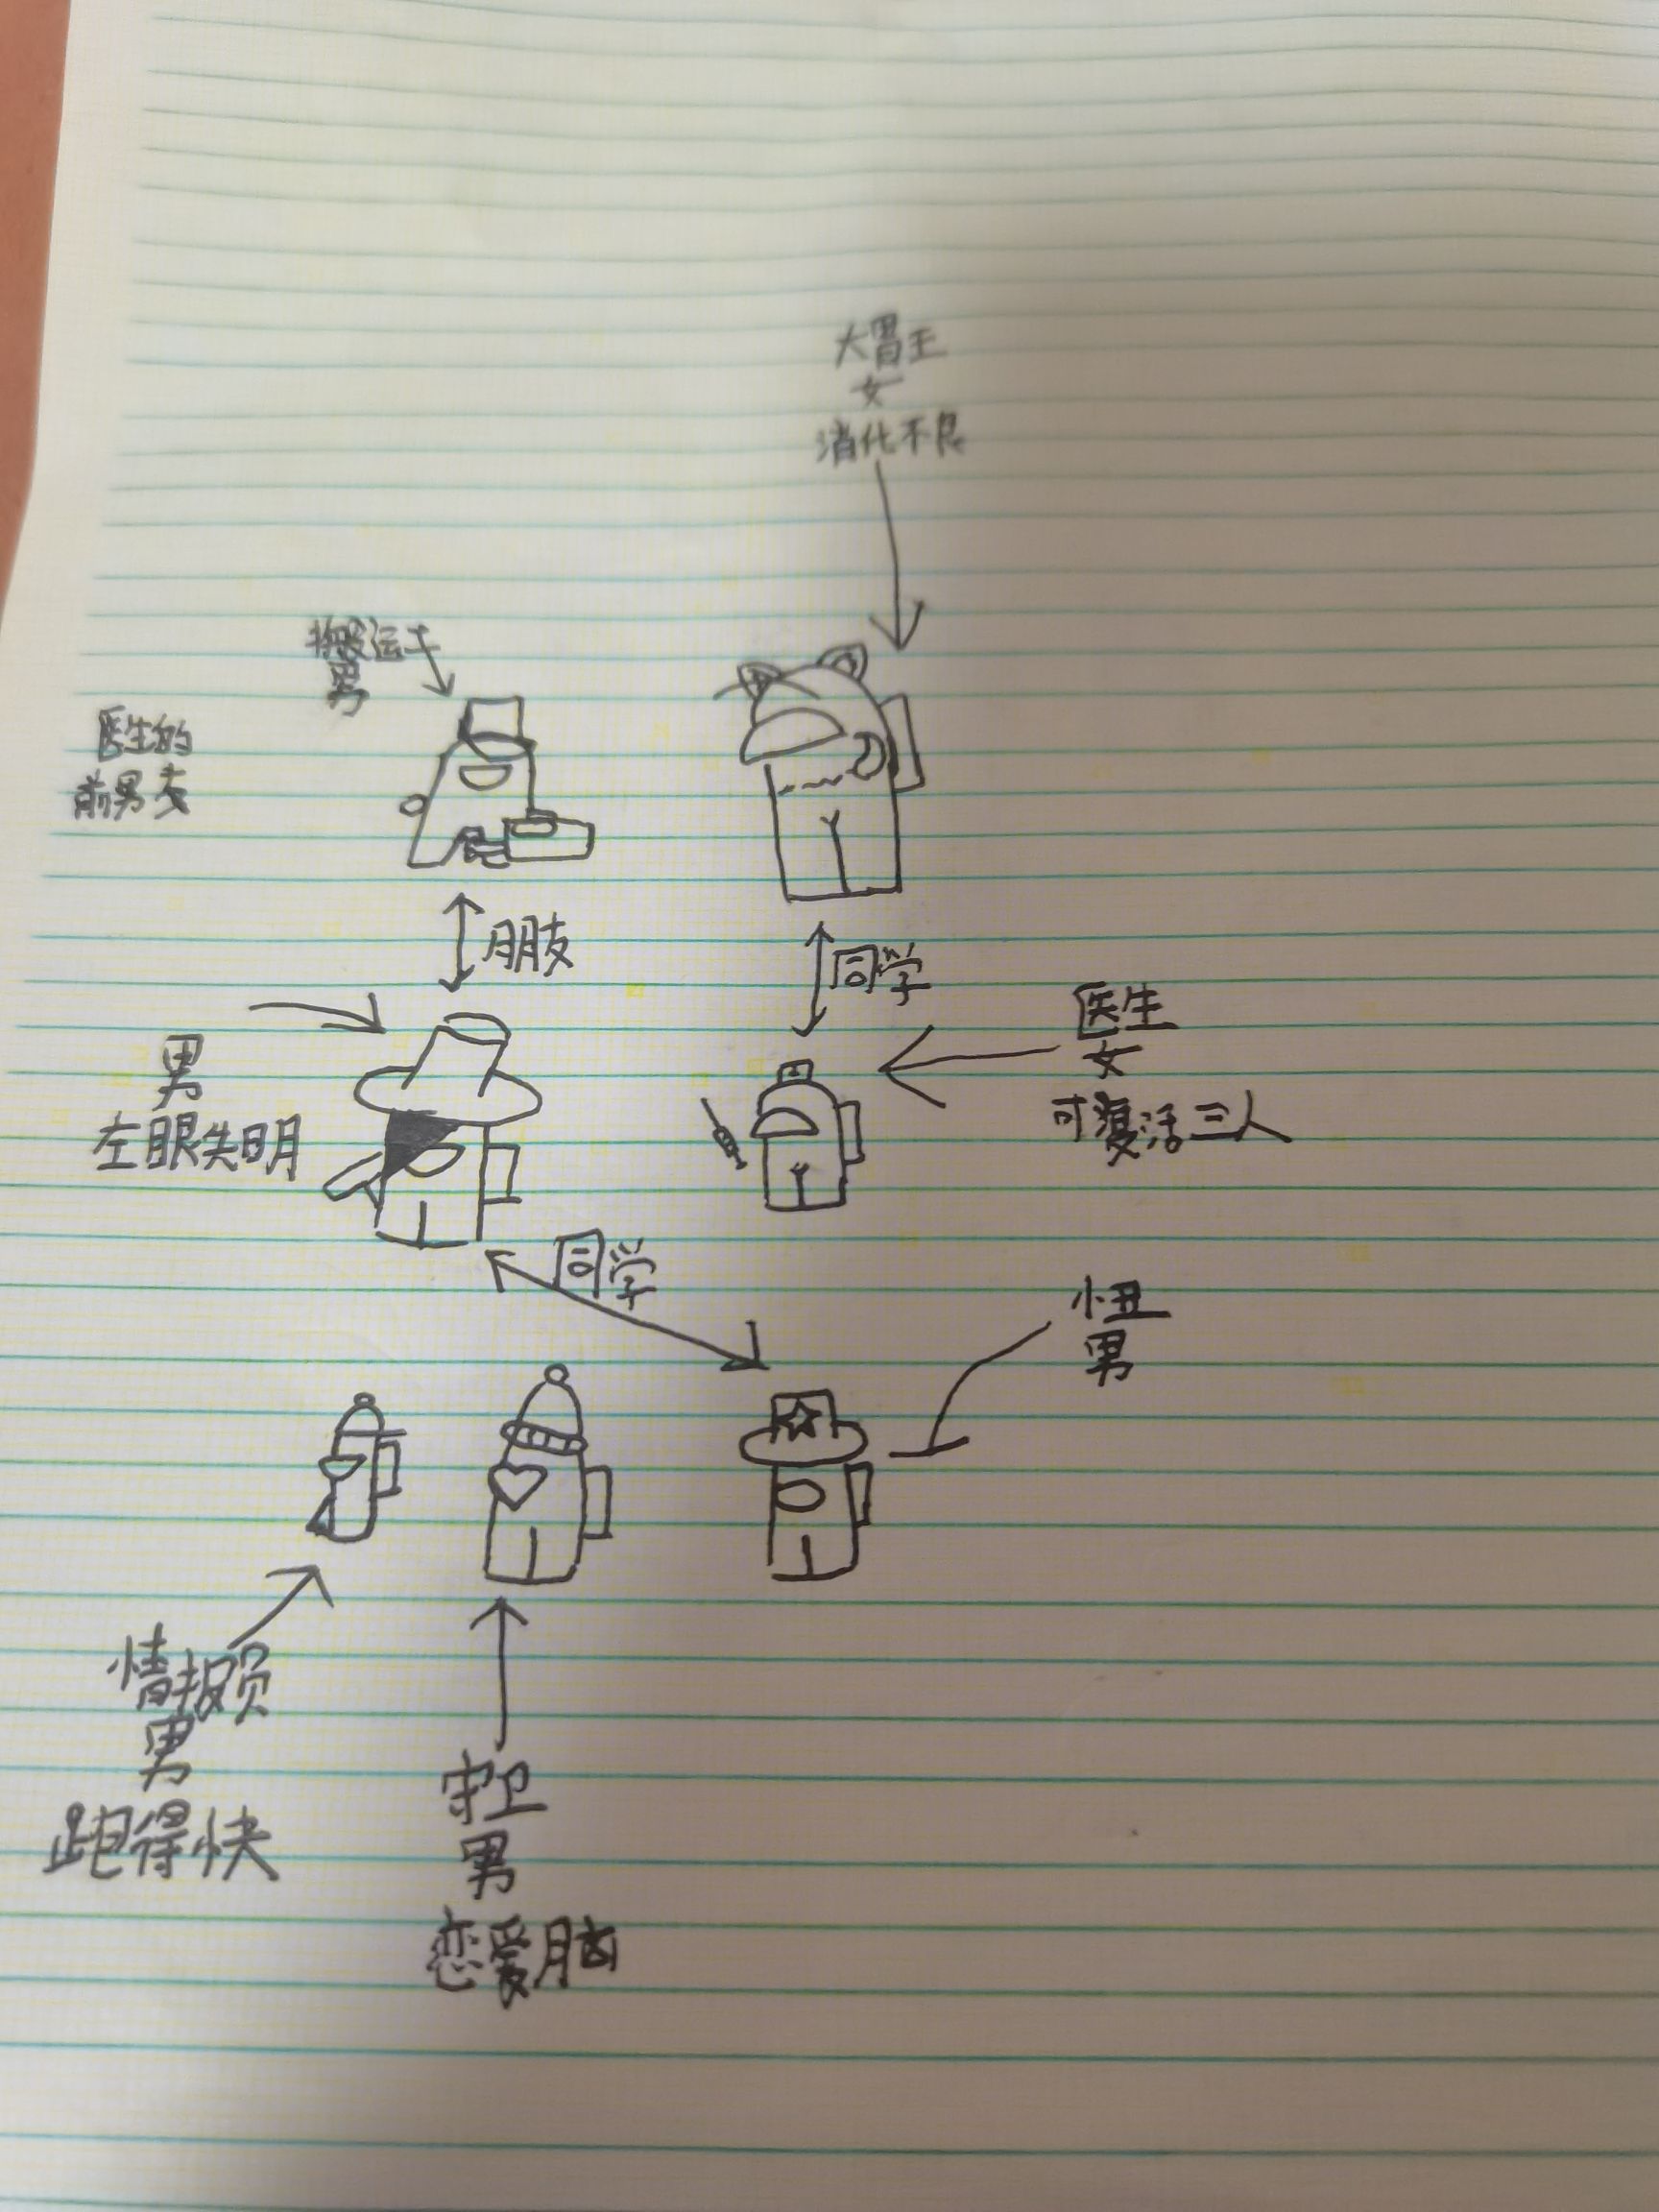 大胃王
女
消化不良
搬运工
男
医生的
前男友
朋友
同学
男
左眼失明
医生
女
可复活三人
同学
小丑
男
情报员
男
跑得快
守卫
男
恋爱脑